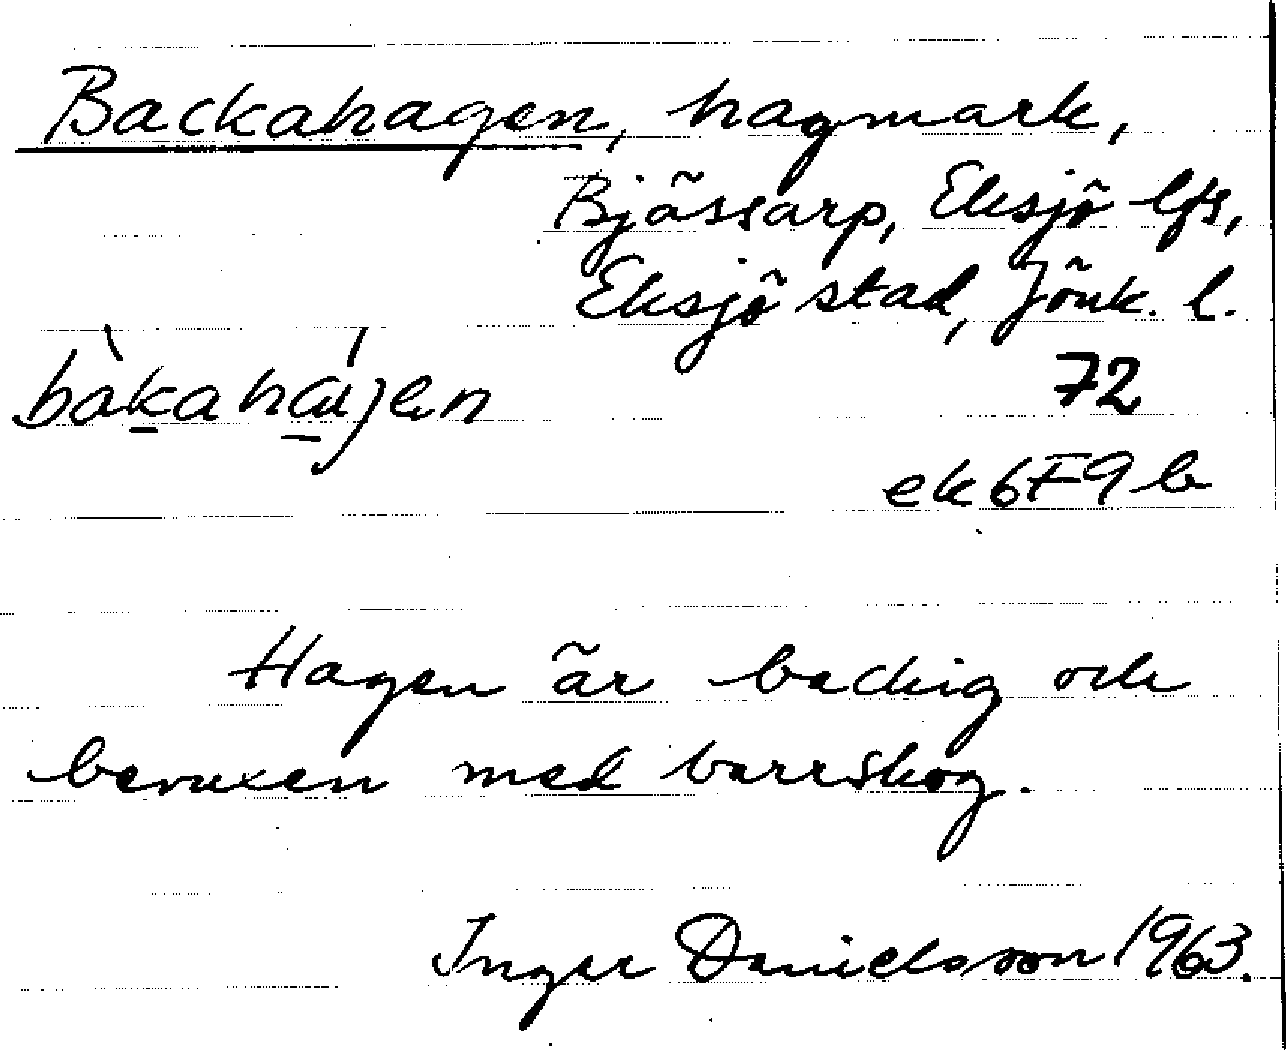 Backahagen, hagmark,
Bjässarp, Eksjö lfs,
Eksjö stad, Jönk. l.
bàkahájen 72
ek 6F9 b
Hagen är backig och
bevuxen med barrskog.
Inger Danielsson 1963.